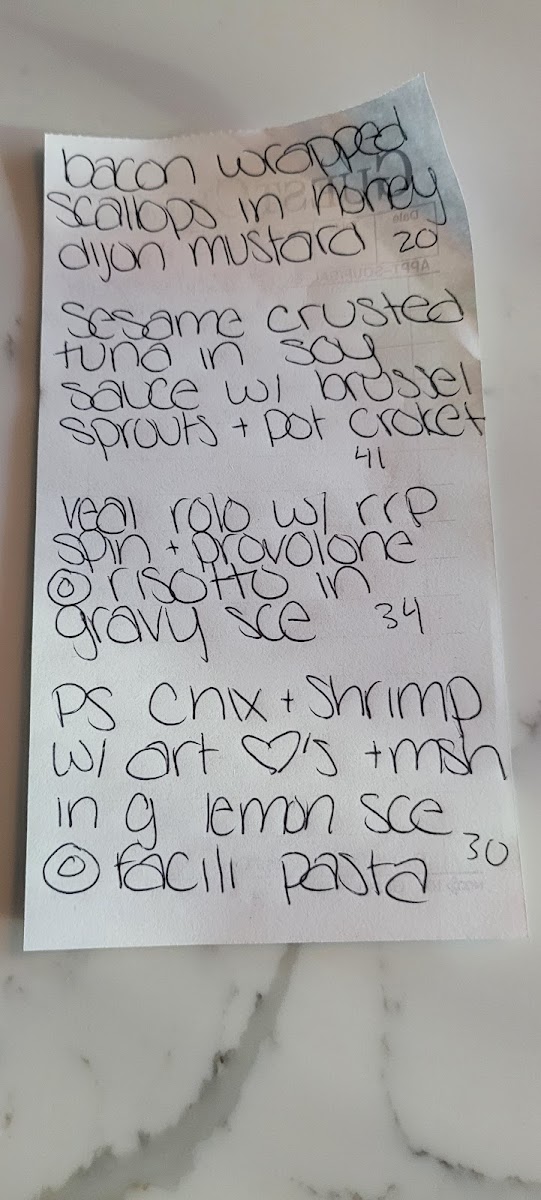 bacon wrapped
scallops in honey
dijon mustard 20
sesame crusted
tuna in soy
sauce w/ brussel
sprouts + pot croket
41
veal rolo w/ rrp
spin + provolone
◎ risotto in
gravy sce 34
PS Chix + Shrimp
w/ art ♡'s + msh
in g lemon sce
◎ facili pasta 30